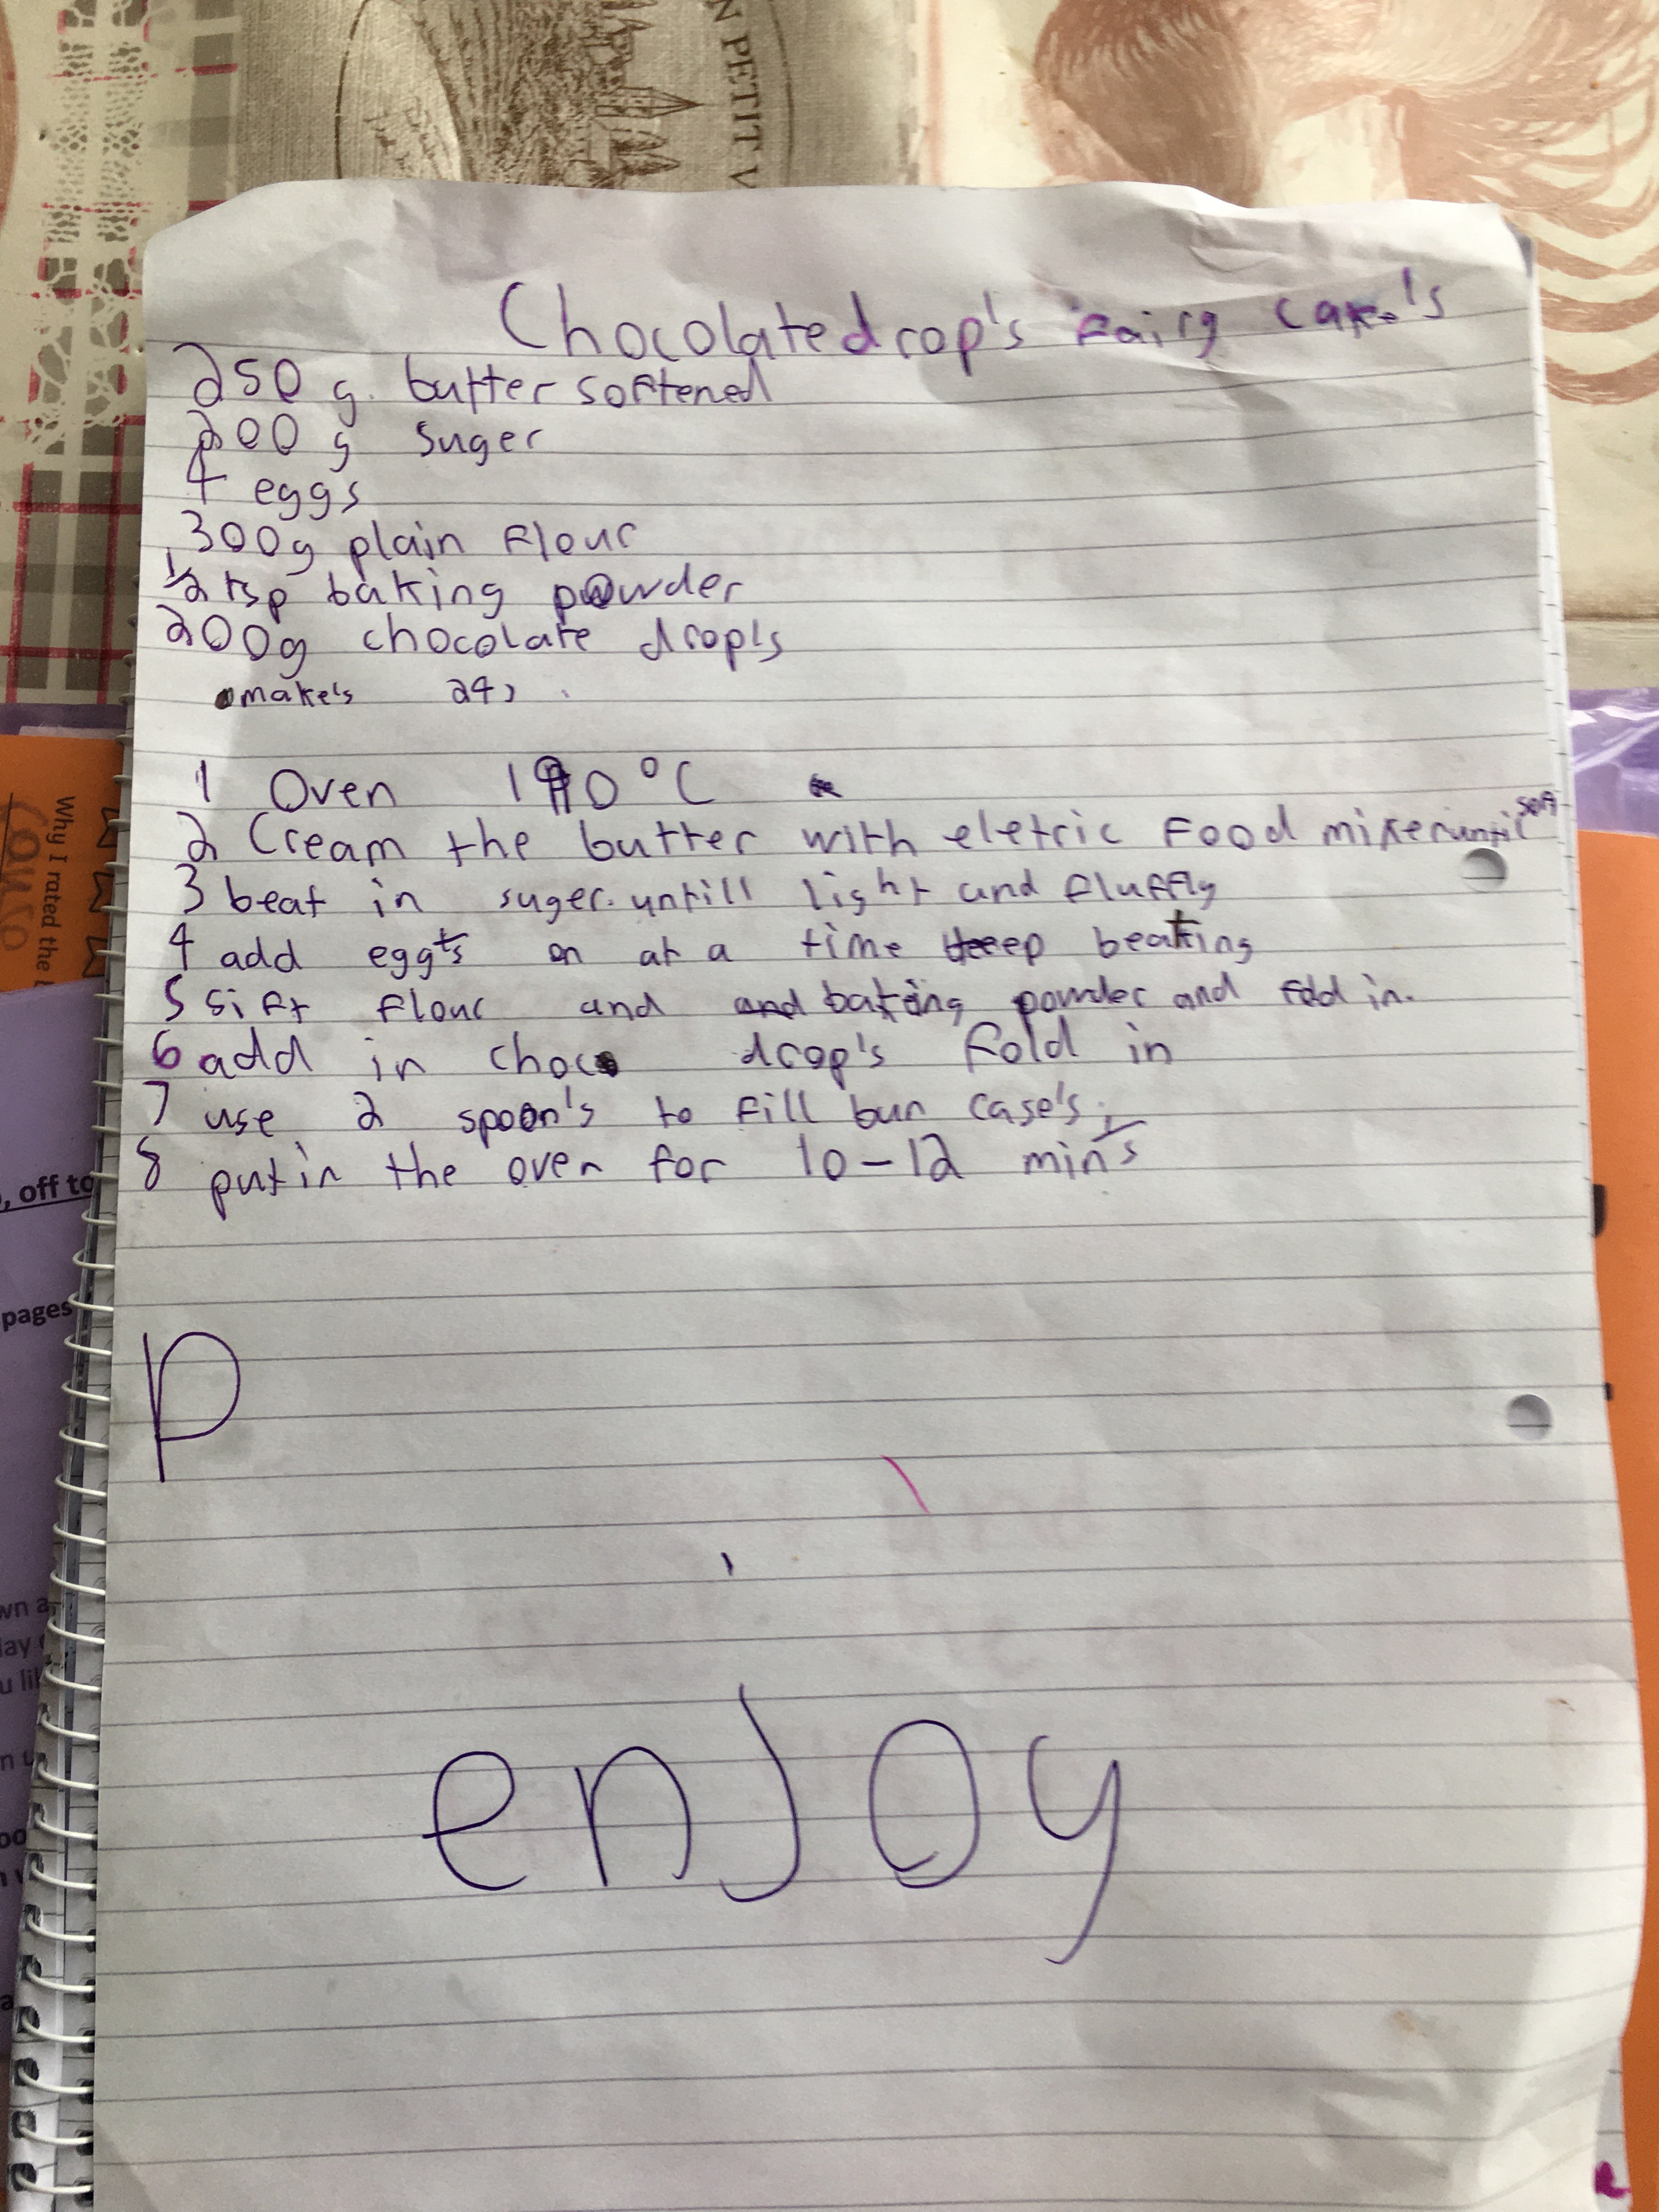 N PETIT V
Chocolatedrop's Fairy Cake's
250 g. butter softened
200 g suger
4 eggs
300g plain flour
1/2 tsp baking powder
200g chocolate drop's
make's 24
1 Oven 190°C
2 Cream the butter with eletric Food mixer until soft
3 beat in suger. untill light and fluffly
4 add eggs on at a time keep beating
5 sift flour and and baking powder and fold in.
6 add in choc drop's fold in
7 use 2 spoon's to fill bun case's,
8 put in the oven for 10-12 min's
P
enjoy
Why I rated the
, off to
pages